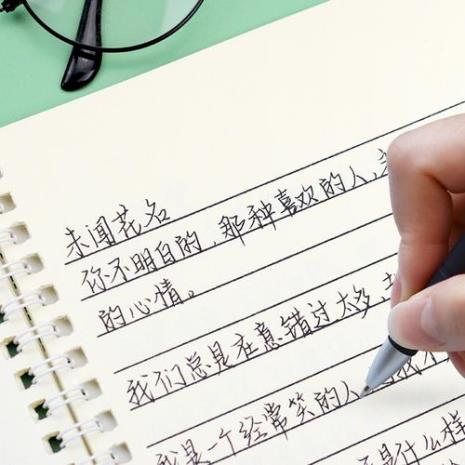 未闻花名
你不明白的,那种喜欢的人,
的心情。
我们总是在意错过太多,
我是一个经常笑的人,
是什么样